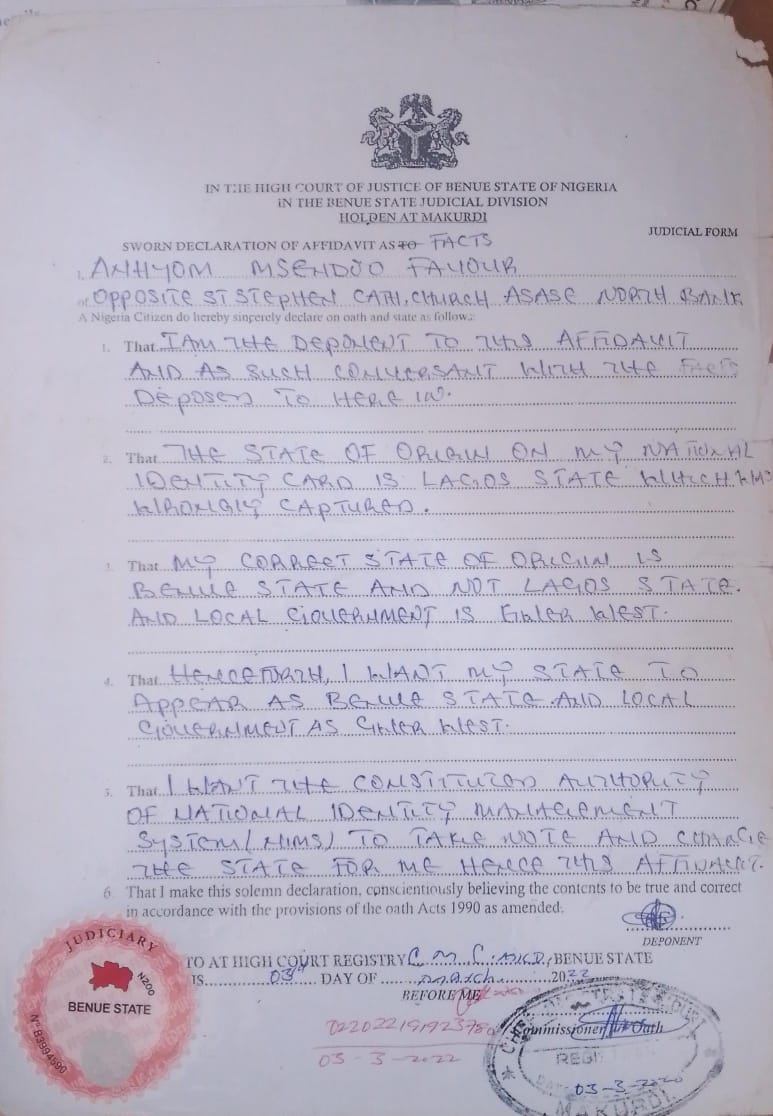 IN THE HIGH COURT OF JUSTICE OF BENUE STATE OF NIGERIA
IN THE BENUE STATE JUDICIAL DIVISION
HOLDEN AT MAKURDI
JUDICIAL FORM
SWORN DECLARATION OF AFFIDAVIT AS TO FACTS
I, ANHYOM MSENDOO FAVOUR
of OPPOSITE ST STEPHEN CATH. CHURCH ASASE NORTH BANK
A Nigeria Citizen do hereby sincerely declare on oath and state as follow.:
1. That I AM THE DEPONENT TO THIS AFFIDAVIT
AND AS SUCH CONVERSANT WITH THE FACTS
DEPOSED TO HERE IN.
2. That THE STATE OF ORIGIN ON MY NATIONAL
IDENTITY CARD IS LAGOS STATE WHICH WAS
WRONGLY CAPTURED.
3. That MY CORRECT STATE OF ORIGIN IS
BENUE STATE AND NOT LAGOS STATE.
AND LOCAL GOVERNMENT IS GWER WEST.
4. That HENCEFORTH, I WANT MY STATE TO
APPEAR AS BENUE STATE AND LOCAL
GOVERNMENT AS GWER WEST.
5. That I WANT THE CONSTITUTED AUTHORITY
OF NATIONAL IDENTITY MANAGEMENT
SYSTEM (NIMS) TO TAKE NOTE AND CHANGE
THE STATE FOR ME HENCE THIS AFFIDAVIT.
6. That I make this solemn declaration, conscientiously believing the contents to be true and correct
in accordance with the provisions of the oath Acts 1990 as amended.
DEPONENT
TO AT HIGH COURT REGISTRY C.M.C. MKD, BENUE STATE
IS 03rd DAY OF March 2022
BEFORE ME
Commissioner Oath
03-3-2022
JUDICIARY
N200
BENUE STATE
No B3994590
REGISTRAR
DATE 03-3-2022
MAKURDI